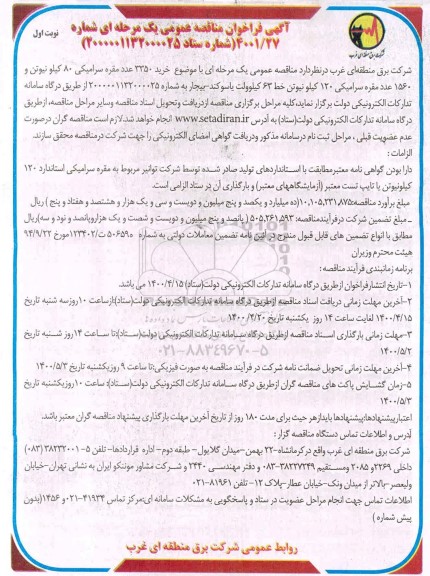 آگهی فراخوان مناقصه عمومی یک مرحله ای شماره
۴۰۰۱/۲۷(شماره ستاد ۲۰۰۰۰۰۱۱۱۳۲۰۰۰۰۲۵)
نوبت اول
شرکت برق منطقه‌ای غرب درنظردارد مناقصه عمومی یک مرحله ای با موضوع خرید ۳۳۵۰ عدد مقره سرامیکی ۸۰ کیلو نیوتن و
۱۵۶۰ عدد مقره سرامیکی ۱۲۰ کیلو نیوتن خط ۶۳ کیلوولت یاسوکند-بیجار به شماره ۲۰۰۰۰۰۱۱۱۳۲۰۰۰۰۲۵ از طریق درگاه سامانه
تدارکات الکترونیکی دولت برگزار نماید.کلیه مراحل برگزاری مناقصه ازدریافت وتحویل اسناد مناقصه وسایر مراحل مناقصه، ازطریق
درگاه سامانه تدارکات الکترونیکی دولت(ستاد) به آدرس www.setadiran.ir انجام خواهد شد.لازم است مناقصه گران درصورت
عدم عضویت قبلی ، مراحل ثبت نام درسامانه مذکور ودریافت گواهی امضای الکترونیکی را جهت شرکت درمناقصه محقق سازند.
الزامات :
دارا بودن گواهی نامه معتبرمطابقت با استانداردهای تولید صادر شده توسط شرکت توانیر مربوط به مقره سرامیکی استاندارد ۱۲۰
کیلونیوتن یا تایپ تست معتبر (آزمایشگاههای معتبر) و بارگذاری آن در ستاد الزامی است.
مبلغ برآورد مناقصه:۱۰,۱۰۵,۲۳۱,۸۷۵(ده میلیارد و یکصد و پنج میلیون و دویست و سی و یک هزار و هشتصد و هفتاد و پنج) ریال
ـ مبلغ تضمین شرکت درفرآیندمناقصه: ۵۰۵,۲۶۱,۵۹۳ ( پانصد و پنج میلیون و دویست و شصت و یک هزاروپانصد و نود و سه)ریال
مطابق با انواع تضمین های قابل قبول مندرج در آیین نامه تضمین معاملات دولتی به شماره ۱۲۳۴۰۲/ت۵۰۶۵۹ه مورخ ۹۴/۹/۲۲
هیئت محترم وزیران
برنامه زمانبندی فرآیند مناقصه:
۱-تاریخ انتشارفراخوان ازطریق درگاه سامانه تدارکات الکترونیکی دولت(ستاد) ۱۴۰۰/۴/۱۵ می باشد.
۲-آخرین مهلت زمانی دریافت اسناد مناقصه ازطریق درگاه سامانه تدارکات الکترونیکی دولت(ستاد):ازساعت ۱۰ روزسه شنبه تاریخ
۱۴۰۰/۴/۱۵ لغایت ساعت ۱۴ روز یکشنبه تاریخ ۱۴۰۰/۴/۲۰
۳-مهلت زمانی بارگذاری اسناد مناقصه ازطریق درگاه سامانه تدارکات الکترونیکی دولت(ستاد):تا ساعت ۱۴ روز شنبه تاریخ
۱۴۰۰/۵/۲
۴-آخرین مهلت زمانی تحویل ضمانت نامه شرکت در فرآیند مناقصه به صورت فیزیکی:تا ساعت ۹ روزیکشنبه تاریخ ۱۴۰۰/۵/۳
۵-زمان گشایش پاکت های مناقصه گران ازطریق درگاه سامانه تدارکات الکترونیکی دولت(ستاد): ساعت ۱۰ روزیکشنبه تاریخ
۱۴۰۰/۵/۳
اعتبارپیشنهادها:پیشنهادها بایدازهر حیث برای مدت ۱۸۰ روز از تاریخ آخرین مهلت بارگذاری پیشنهاد مناقصه گران معتبر باشد.
آدرس و اطلاعات تماس دستگاه مناقصه گزار :
شرکت برق منطقه ای غرب واقع در:کرمانشاه-۲۲ بهمن-میدان گلایول- طبقه دوم- اداره قراردادها- تلفن ۵-۳۸۲۳۲۰۰۱ (۰۸۳)
داخلی ۲۲۶۹و ۲۰۸۵ ومستقیم ۳۸۲۲۷۲۴۹-۰۸۳ و دفتر مهندسی ۲۴۴۰ و شرکت مشاور موننکو ایران به نشانی تهران-خیابان
ولیعصر-بالاتر از میدان ونک-خیابان عطار-پلاک ۱۲- تلفن ۸۱۹۶۱-۰۲۱
اطلاعات تماس جهت انجام مراحل عضویت در ستاد و پاسخگویی به مشکلات سامانه ای:مرکز تماس ۴۱۹۳۴-۰۲۱و ۱۴۵۶(بدون
پیش شماره )
روابط عمومی شرکت برق منطقه ای غرب
۰۲۱-۸۸۳۴۹۶۷۰-۵